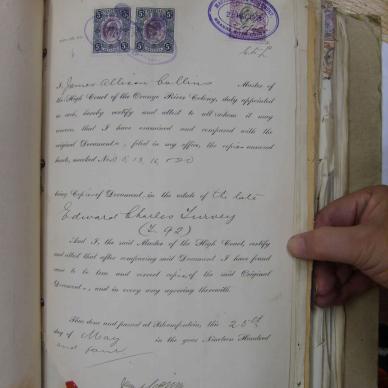 5 5
5 5
I, James Allison Collins Master of
the High Court of the Orange River Colony, duly appointed
as such, hereby certify and attest to all whom it may
concern that I have examined and compared with the
original Documents, filed in my office, the copies annexed
hereto, marked Nos
being Copies of Document in the estate of the late
Edward Charles Turvey
(T. 92)
And I, the said Master of the High Court, certify
and attest that after comparing said Document I have found
same to be true and correct copies of the said Original
Documents, and in every way agreeing therewith.
Thus done and passed at Bloemfontein, this 25th
day of May in the year Nineteen Hundred
and four